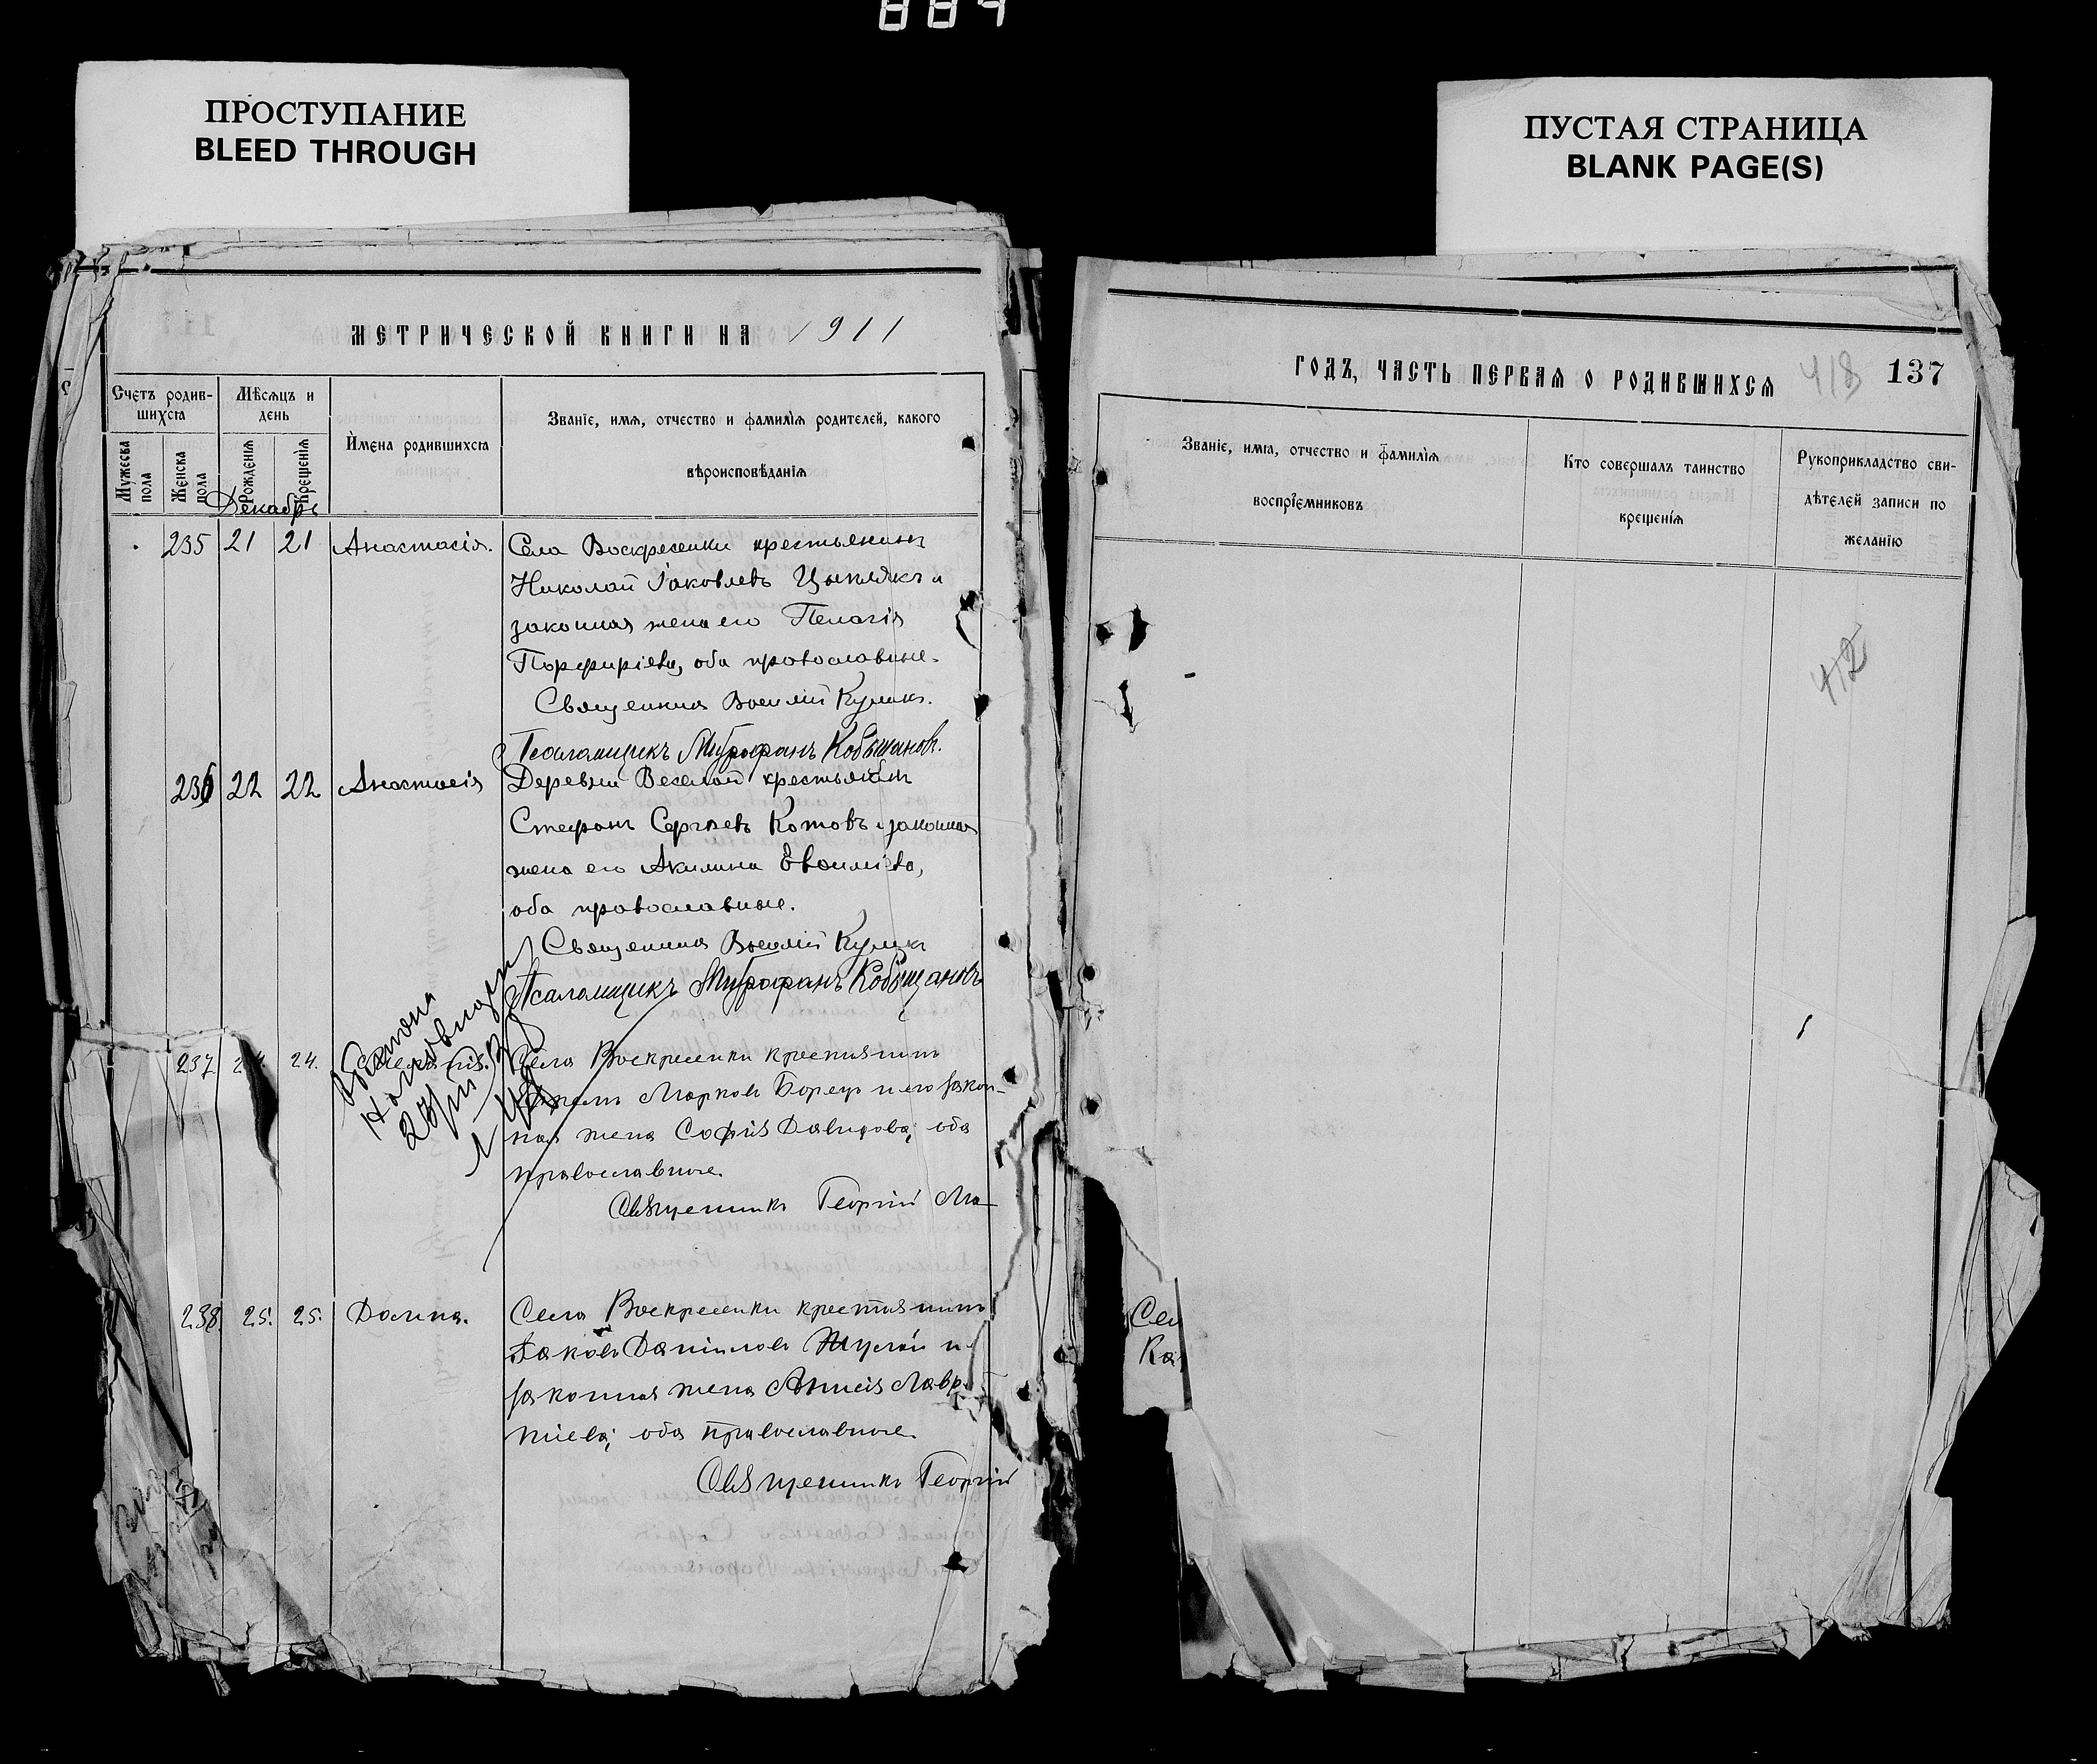 884
ПРОСТУПАНИЕ
BLEED THROUGH
ПУСТАЯ СТРАНИЦА
BLANK PAGE(S)
МЕТРИЧЕСКОЙ КНИГИ НА 1911
Счетъ родив-
шихся
Мѣсяцъ и
день
Имена родившихся
Званіе, имя, отчество и фамилія родителей, какого
вѣроисповѣданія
Мужеска пола
Женска пола
Рожденія
Крещенія
Декабрь
235 21 21 Анастасія. Села Воскресенки крестьянинъ
Николай Іаковлевъ Цыплякъ и
законная жена его Пелагія
Порфиріева, оба православные.
Священникъ Василій Куликъ.
Псаломщикъ Митрофанъ Кобыщановъ.
236 22 22 Анастасія Деревни Веселой крестьянинъ
Стефанъ Сергѣевъ Котовъ и законная
жена его Акилина
оба православные.
Священникъ Василій Куликъ
Псаломщикъ Митрофанъ Кобыщановъ
237 24. Села Воскресенки крестьянинъ
Марковъ Борецъ и его закон-
ная жена Софія Давидова, оба
православные.
Священникъ Георгій Ма
238. 25. 25. Домна. Села Воскресенки крестьянинъ
Іаковъ Даніиловъ и
законная жена Анисія Лавр
тіева, оба православные.
Священникъ Георгій
ГОДЪ, ЧАСТЬ ПЕРВАЯ О РОДИВШИХСЯ 418 137
Званіе, имя, отчество и фамилія
воспріемниковъ
Кто совершалъ таинство
крещенія
Рукоприкладство сви-
дѣтелей записи по
желанію
412
Сел
Ка